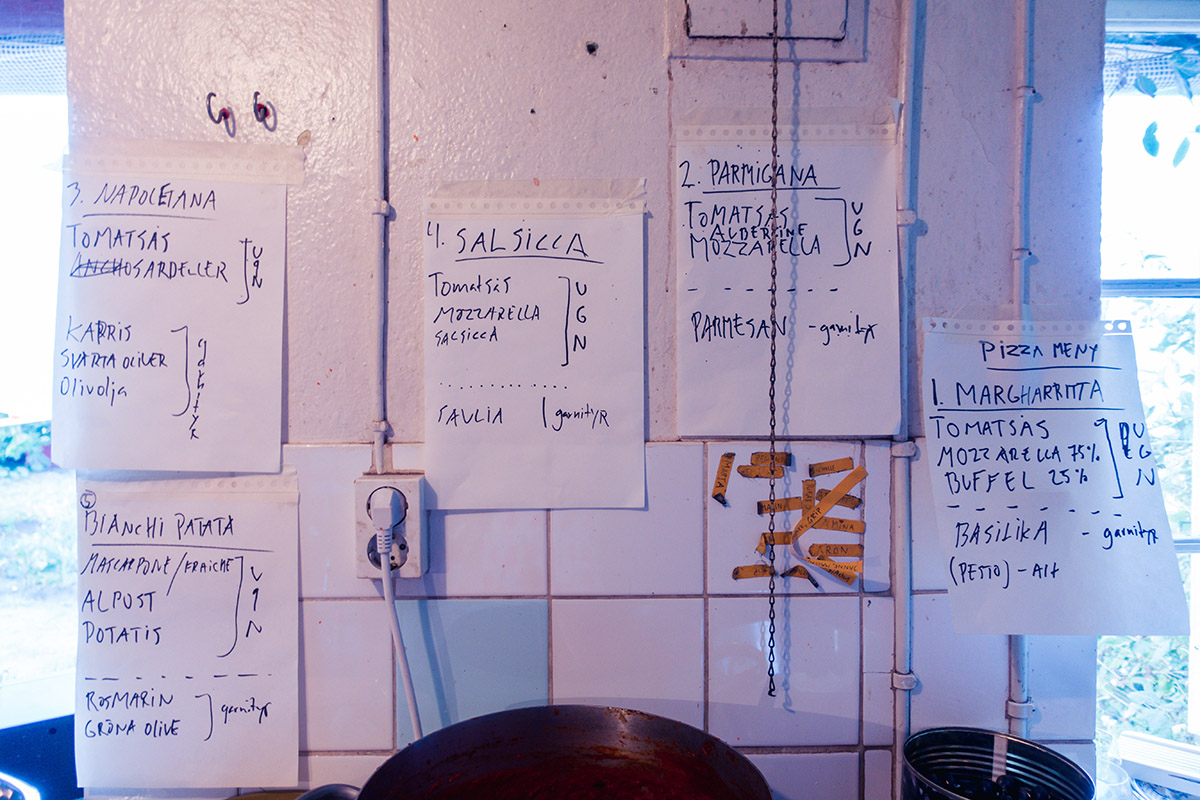 3. NAPOLETANA
TOMATSÅS
SARDELLER
UGN
KAPRIS
SVARTA OLIVER
Olivolja
garnityr
4. SALSICCA
Tomatsås
MOZZARELLA
SALSICCA
UGN
SALVIA
garnityr
2. PARMIGANA
TOMATSÅS
AUBERGINE
MOZZARELLA
UGN
PARMESAN - garnityr
PIZZA MENY
1. MARGHARRITTA
TOMATSÅS
MOZZARELLA 75%
BUFFEL 25%
UGN
BASILIKA - garnityr
(PESTO) - Alt
5
BIANCHI PATATA
MASCARPONE/FRAICHE
ALPOST
POTATIS
UGN
ROSMARIN
GRÖNA OLIVE
garnityr
GRIP
MINA
KRON